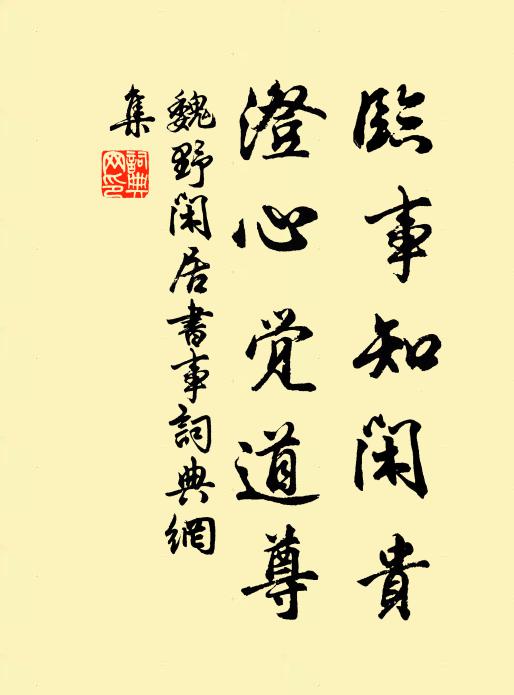 臨事知閑貴
澄心覺道尊
魏野閑居書事詞典網
集
詞典網印